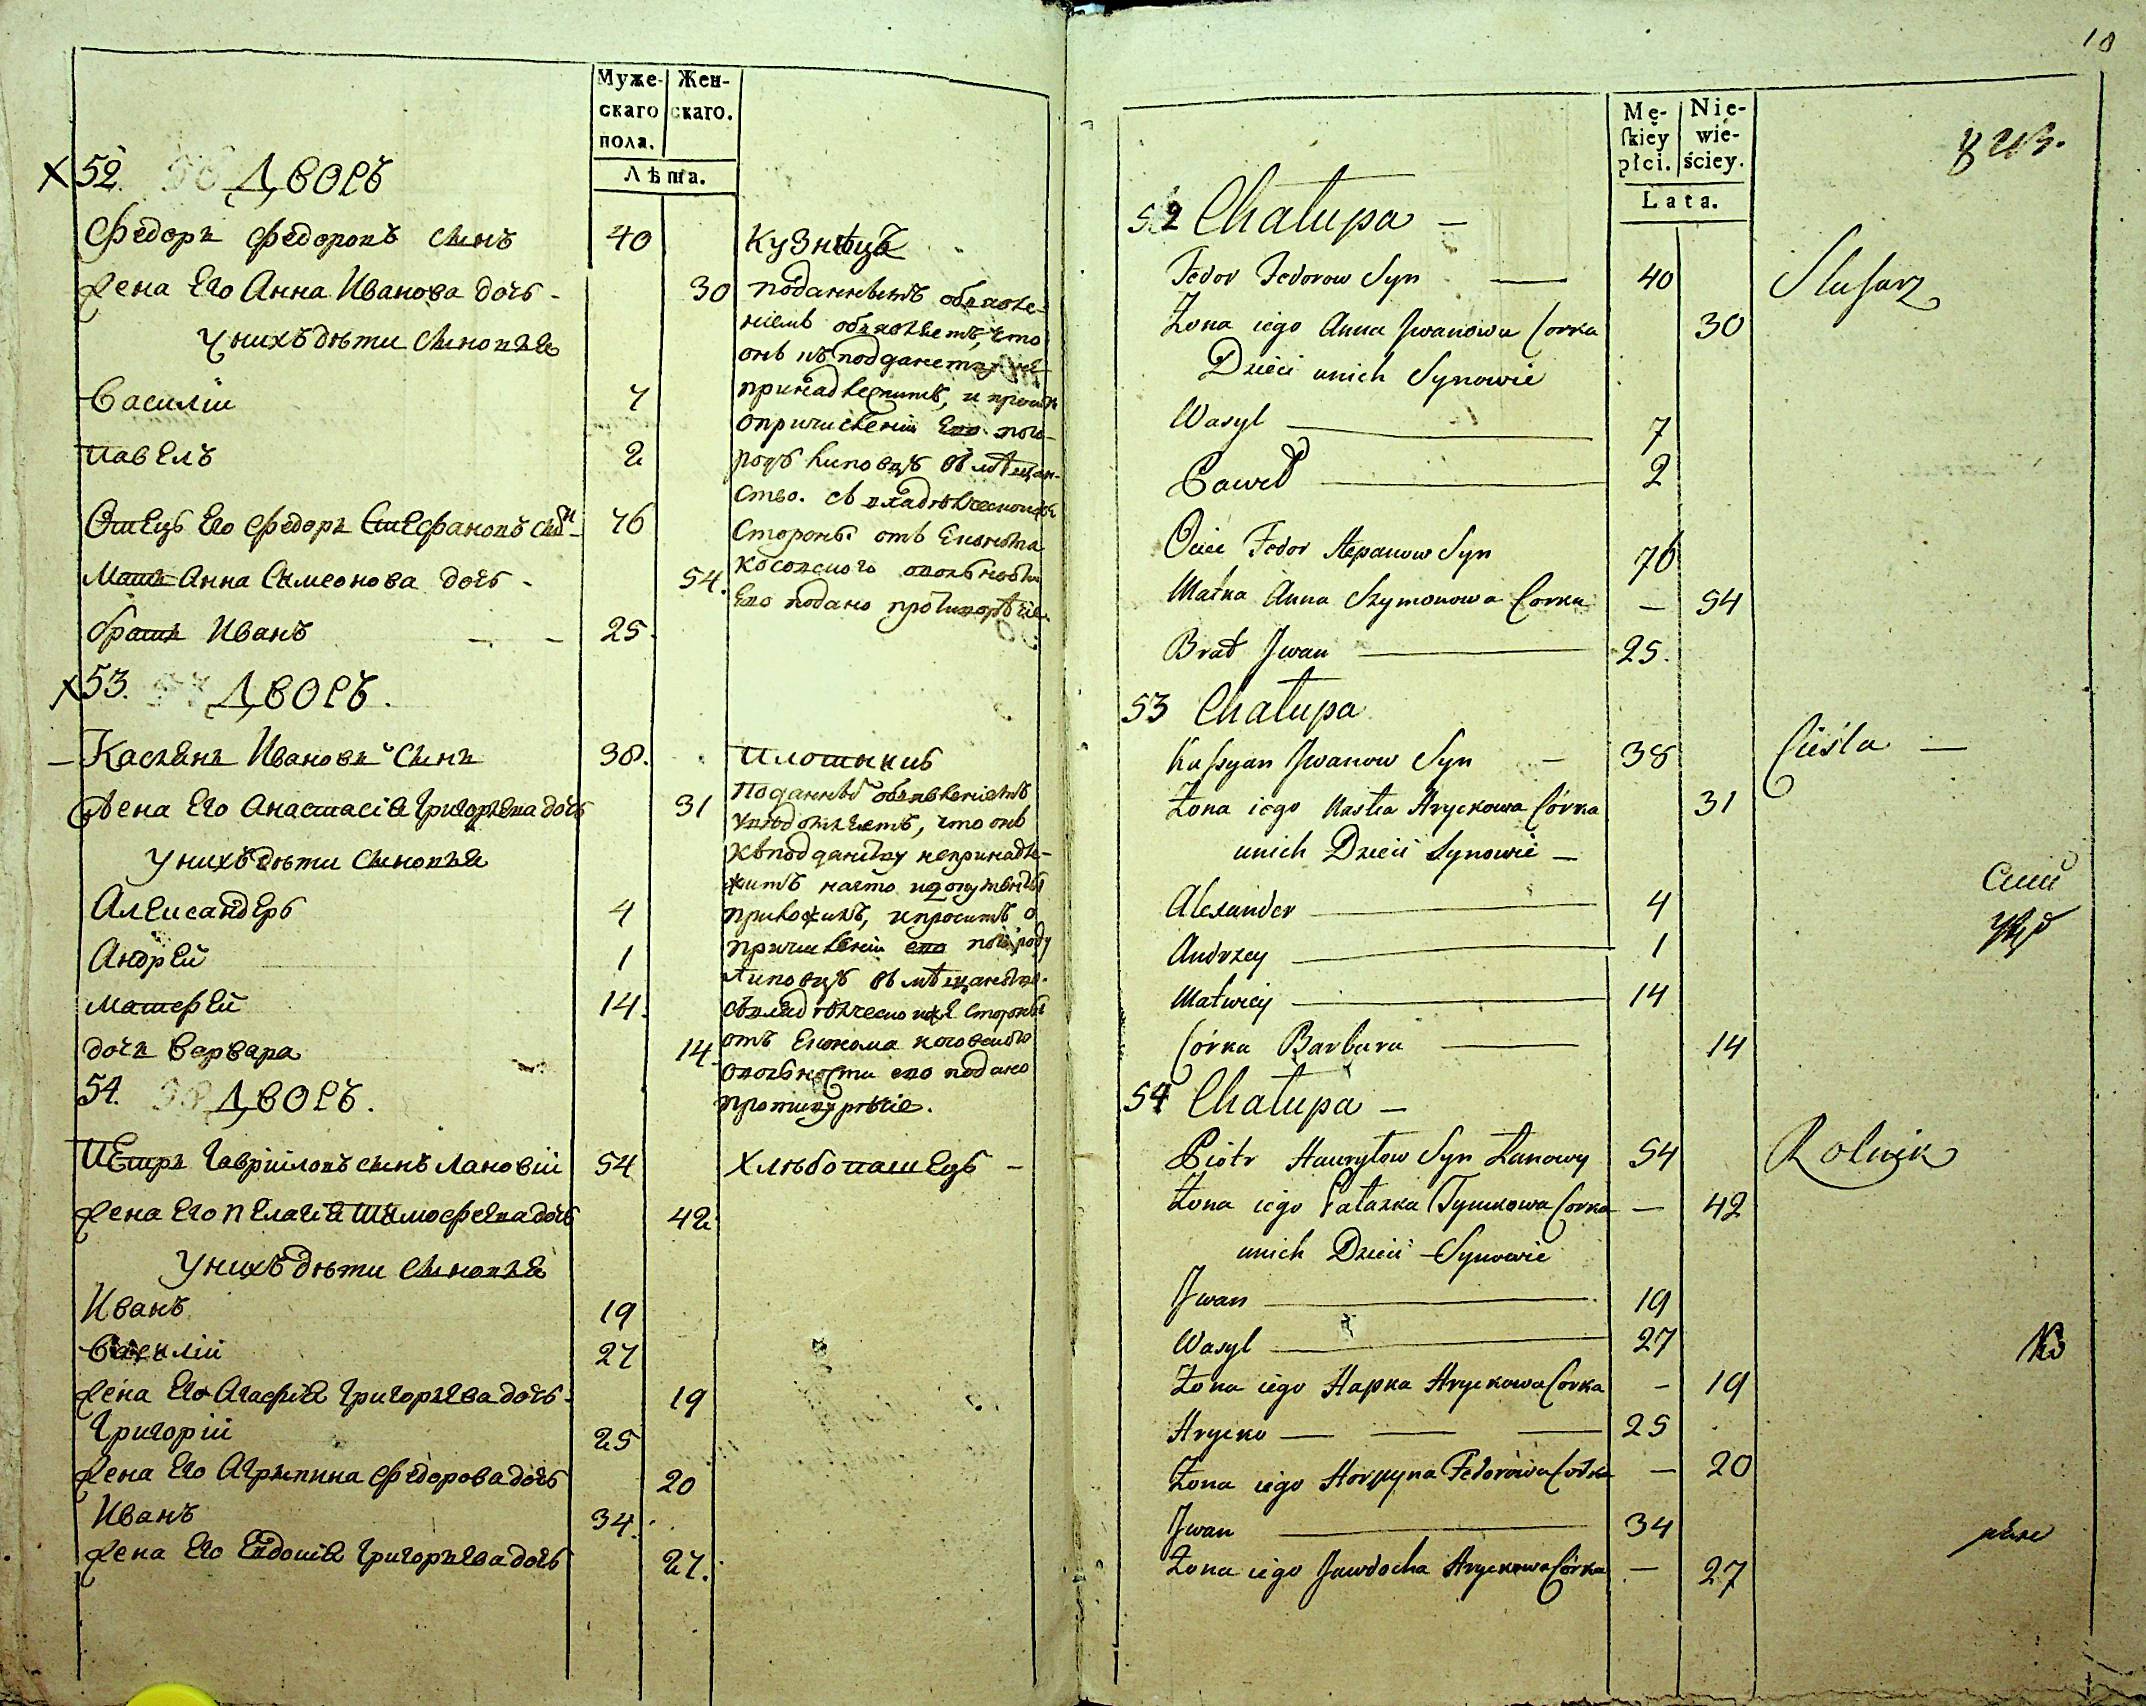 Муже-
скаго
пола.
Жен-
скаго.
Лѣта.
52. 56 Дворъ
Федоръ Федоровъ сынъ 40 Кузнецъ
Жена Его Анна Иванова дочь - 30
У нихъ дѣти сыновья
Василій 7
Павелъ 2
Отецъ Его Федоръ Стефановъ сынъ 76
Мать Анна Симеонова дочь - 54.
братъ Иванъ - - 25.
Поданнымъ объявле-
ніемъ объявляетъ, что
онъ къ подданству не
принадлежитъ, и проситъ
о причисленіи Его по го-
роду Липовцу въ мѣщан-
ство. Съ владѣльческой же
Стороны отъ Економа
его подано противорѣчіе.
53. 57 Дворъ.
Касьянъ Ивановъ Сынъ 38. Плотникъ
Жена Его Анастасія Григорьева дочь 31
У нихъ дѣти сыновья
Александеръ 4
Андрей 1
Матфей 14.
дочь Варвара 14.
Поданнымъ объявленіемъ
что онъ
къ подданству непринадле-
житъ на что и документы
приложилъ, и проситъ о
причисленіи его по городу
Липовцу въ мѣщанство.
Съ владѣльческой же Стороны
отъ Економа
его подано
противурѣчіе.
54. 58 Дворъ.
Петръ Гавріиловъ сынъ Лановій 54 Хлѣбопашецъ -
Жена Его Пелагія Тимофеева дочь 42
У нихъ дѣти сыновья
Иванъ 19
Василій 27
Жена Его Агафія Григорьева дочь - 19
Григорій 25
Жена Его Агрыпина Федорова дочь 20
Иванъ 34.
Жена Его Евдокія Григорьева дочь 27.
10
Mę-
skiey
płci.
Nie-
wie-
ściey.
Lata.
52 Chałupa -
Fedor Fedorow Syn 40 Slusarz
Żona iego Anna Jwanowa Corka 30
Dzieci unich Synowie
Wasyl 7
Paweł 2
Ociec Fedor Stepanow Syn 76
Matka Anna Szymonowa Corka - 54
Brat Jwan 25.
53 Chałupa
Kassyan Jwanow Syn - 38 Cieśla -
Żona iego Nastia Hryckowa Córka 31
unich Dzieci Synowie -
Alexander 4
Andrzey 1
Matwiey 14
Córka Barbara 14
54 Chałupa -
Piotr Hawryłow Syn Łanowy 54 Rolnik
Żona iego Pałazka Tymkowa Corka - 42
unich Dzieci Synowie
Jwan 19
Wasyl 27
Żona iego Hapka Hryckowa Corka - 19
Hrycko 25
Żona iego Horpyna Fedorowa Corka - 20
Jwan 34
Żona iego Jawdocha Hryckowa Córka - 27